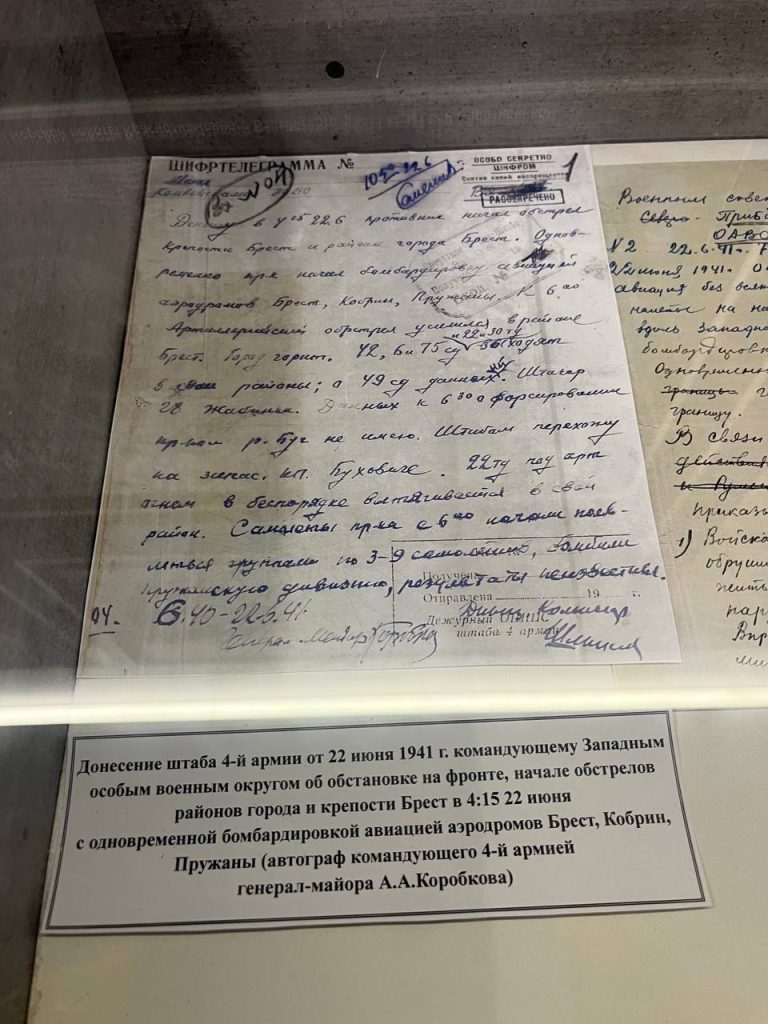 ШИФРТЕЛЕГРАММА №
ОСОБО СЕКРЕТНО
ШИФРОМ
Снятие копий воспрещается
1
РАССЕКРЕЧЕНО
Доношу в 4 15 22.6 противник начал обстрел
крепости Брест и района города Брест. Однов-
ременно пр-к начал бомбардировку авиацией
аэродромов Брест, Кобрин, Пружаны. К 6.00
Артиллерийский обстрел усилился в районе
Брест. Город горит. 42, 6 и 75 сд и 22 и 30 тд
в свои районы; о 49 сд данных нет. Штакор
28 Жабинка. Данных к 6 30 о форсировании
пр-ком р. Буг не имею. Штабом перехожу
на запас. кп. Буховиче. 22 тд под арт
огнем в беспорядке вытягивается в свой
район. Самолеты пр-ка с 6 00 начали появ-
ляться группами по 3-9 самолетов, бомбили
дивизию, результаты неизвестны.
Получена
Отправлена 19 г.
04. 6.40-22.6.41.
Дежурный
штаба 4 армии
Генерал-майор Коробков
Военным
Приб
ОАВО
№2 22.6.41. 7
22 июня 1941.
авиация без
на
вдоль западно
бомбардировк
Одновременно
границы
границу.
В связи
действи
приказы
1) Войска
обруши
нару
Донесение штаба 4-й армии от 22 июня 1941 г. командующему Западным
особым военным округом об обстановке на фронте, начале обстрелов
районов города и крепости Брест в 4:15 22 июня
с одновременной бомбардировкой авиацией аэродромов Брест, Кобрин,
Пружаны (автограф командующего 4-й армией
генерал-майора А.А.Коробкова)